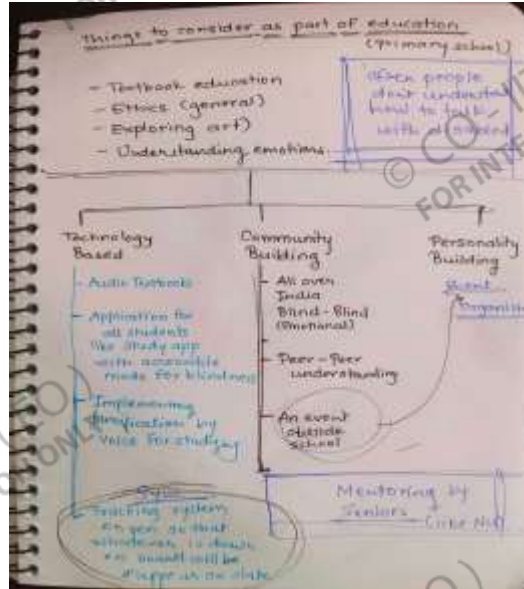 Things to consider as part of education
(primary school)
- Textbook education
- Ethics (general)
- Exploring art)
- Understanding emotions.
often people
don't understand
how to talk
with
© CO
FOR INTE
Technology
Based
- Audio Textbooks
- Application for
all students
like study app
with accessible
mode for blindness
- Implementing
by
voice for studying
Tracking system
on pen so that
whatever is drawn
on board will be
appear on slate
Community
Building
- All over
India
Blind-Blind
(Emotional)
- Peer-Peer
understanding
- An event
outside
school
Mentoring by
Seniors
Personality
Building
Event